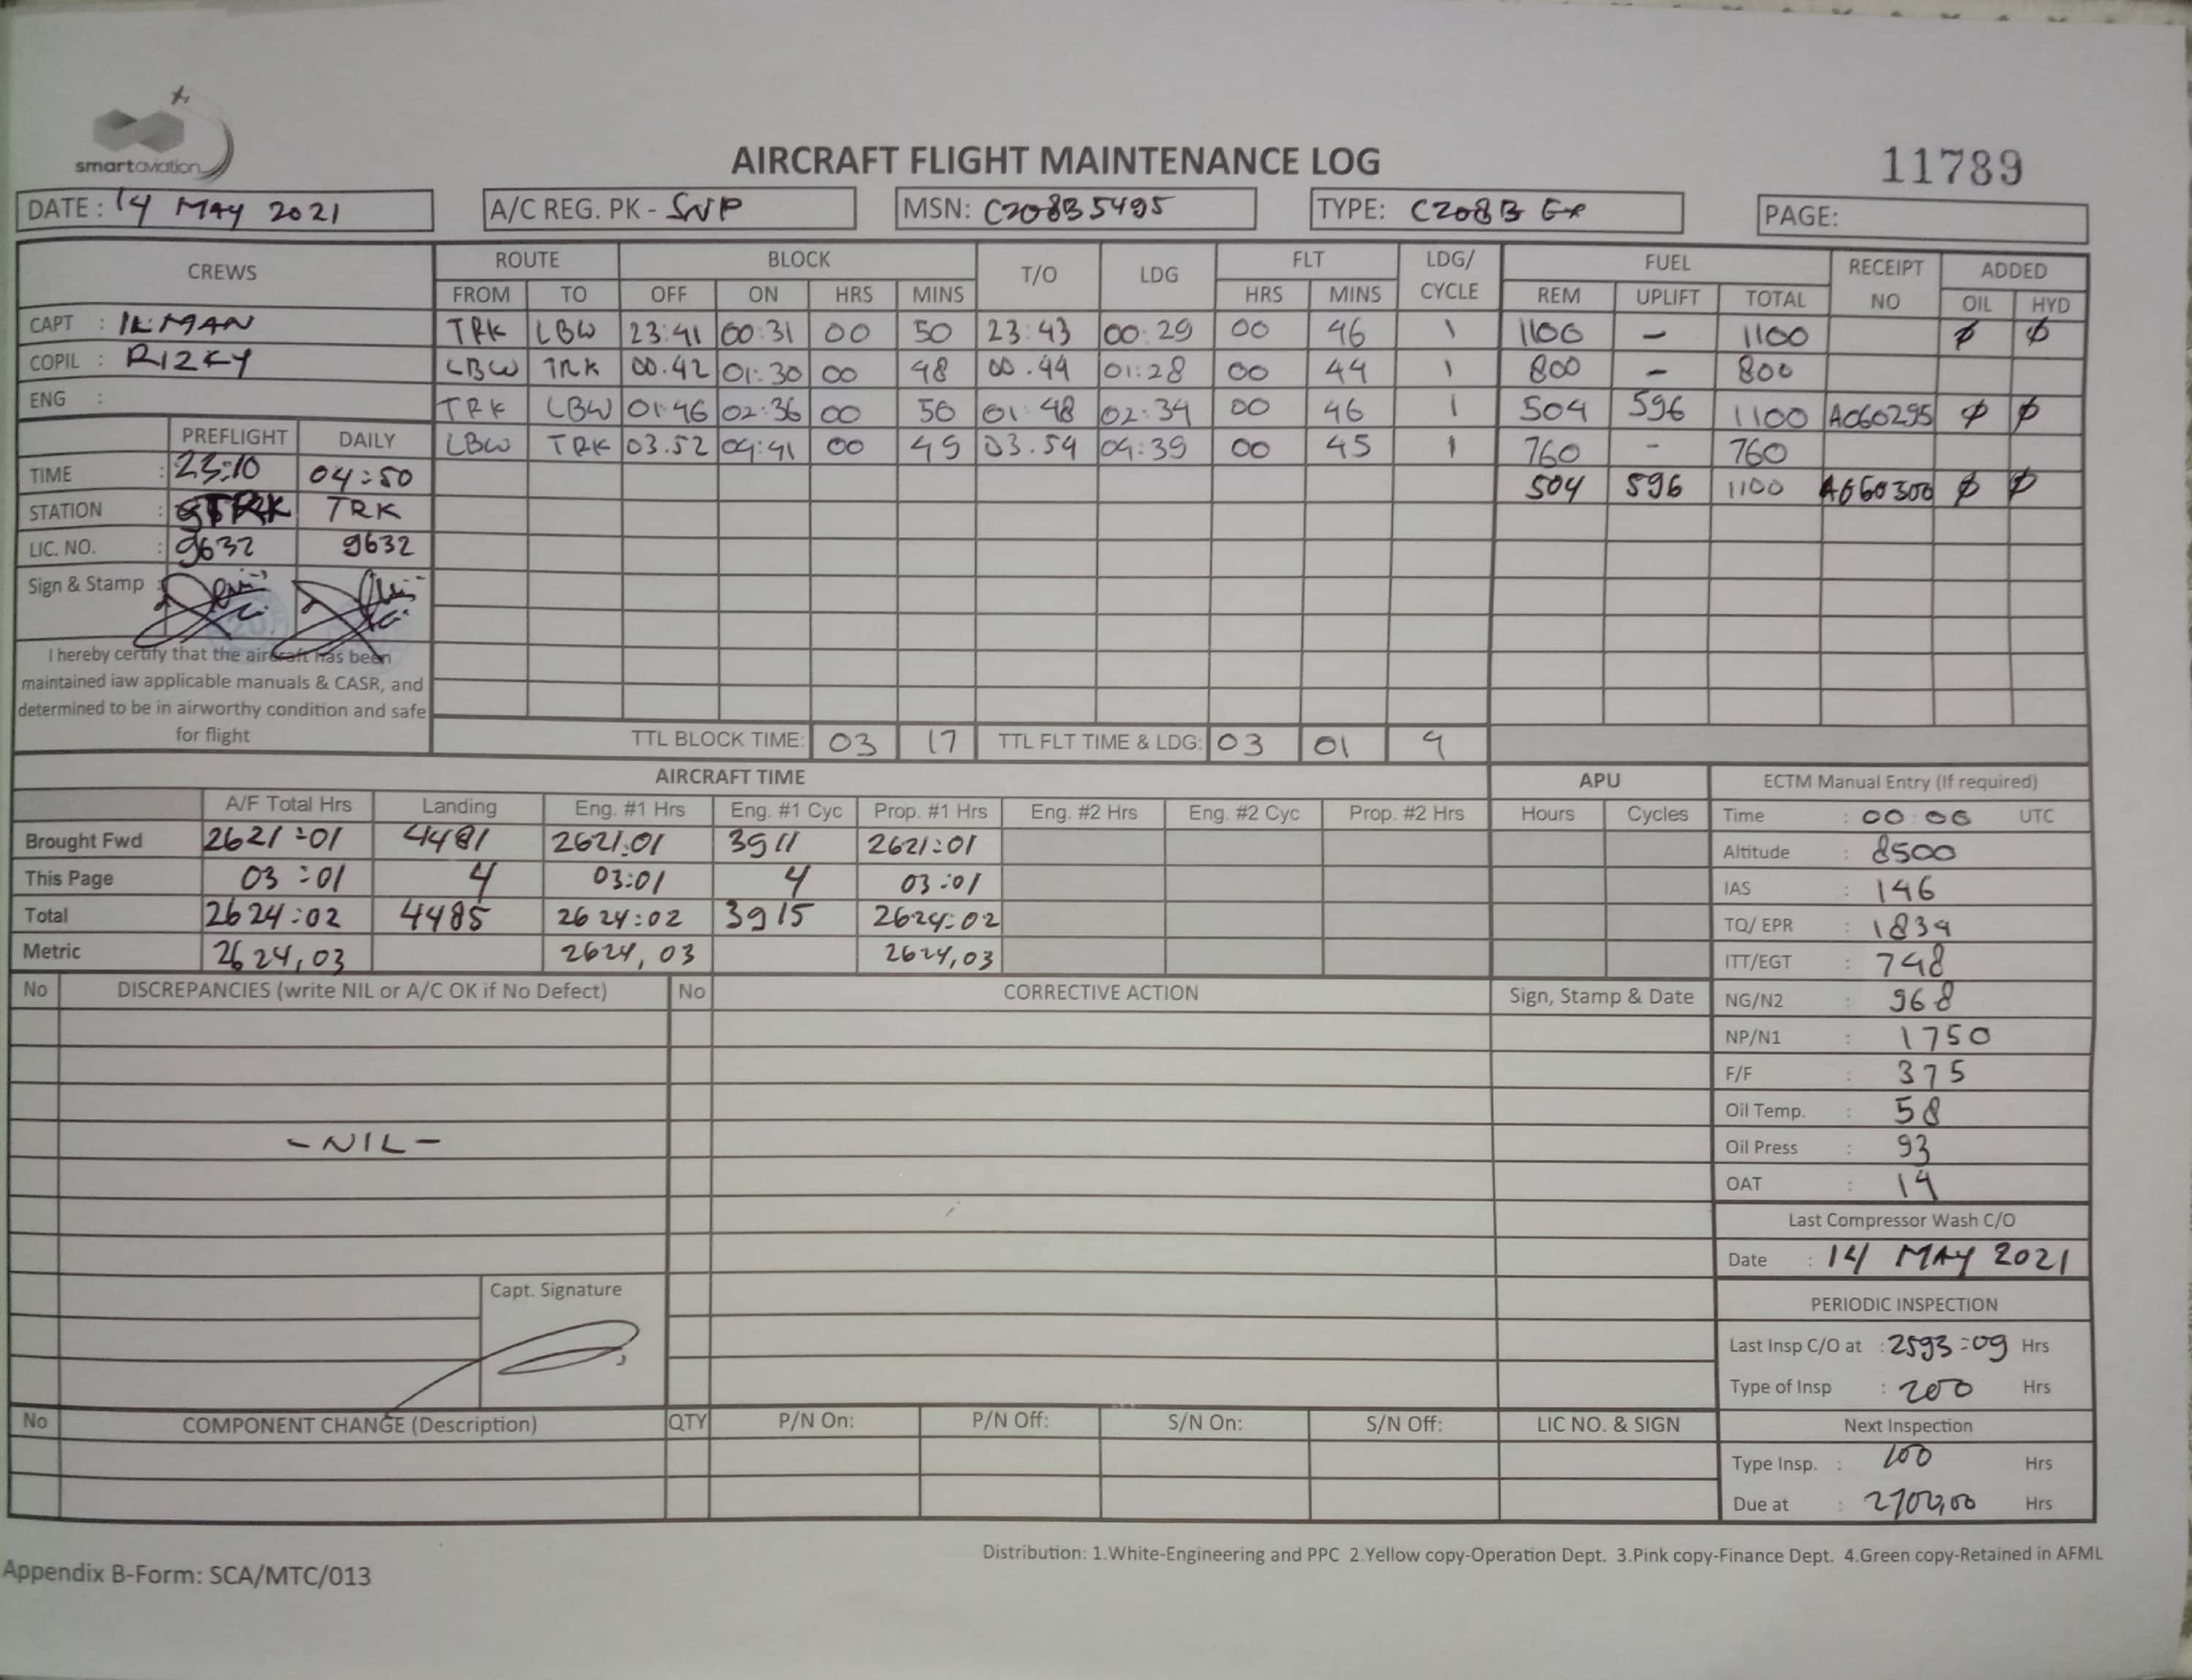 smartaviation
AIRCRAFT FLIGHT MAINTENANCE LOG
11789
DATE : 14 MAY 2021
A/C REG. PK - SNP
MSN: C208B5495
TYPE: C208B EX
PAGE:
CREWS
ROUTE BLOCK T/O LDG FLT LDG/ CYCLE FUEL RECEIPT NO ADDED
FROM TO OFF ON HRS MINS HRS MINS REM UPLIFT TOTAL OIL HYD
CAPT : ILMAN
COPIL : RIZKY
ENG :
TRK LBW 23:41 00:31 00 50 23:43 00:29 00 46 1 1100 - 1100 Ø Ø
LBW TRK 00.42 01:30 00 48 00.44 01:28 00 44 1 800 - 800
TRK LBW 01:46 02:36 00 50 01:48 02:34 00 46 1 504 596 1100 A060295 Ø Ø
LBW TRK 03.52 04:41 00 49 03.54 04:39 00 45 1 760 - 760
504 596 1100 A060300 Ø Ø
PREFLIGHT DAILY
TIME : 23:10 04:50
STATION : TRK TRK
LIC. NO. : 9632 9632
Sign & Stamp :
I hereby certify that the aircraft has been
maintained iaw applicable manuals & CASR, and
determined to be in airworthy condition and safe
for flight
TTL BLOCK TIME: 03 17 TTL FLT TIME & LDG: 03 01 4
AIRCRAFT TIME
APU
ECTM Manual Entry (If required)
A/F Total Hrs Landing Eng. #1 Hrs Eng. #1 Cyc Prop. #1 Hrs Eng. #2 Hrs Eng. #2 Cyc Prop. #2 Hrs Hours Cycles
Brought Fwd 2621:01 4481 2621:01 3911 2621:01
This Page 03:01 4 03:01 4 03:01
Total 2624:02 4485 2624:02 3915 2624:02
Metric 2624,03 2624,03 2624,03
Time : 00:06 UTC
Altitude : 8500
IAS : 146
TQ/ EPR : 1834
ITT/EGT : 748
NG/N2 : 968
NP/N1 : 1750
F/F : 375
Oil Temp. : 58
Oil Press : 93
OAT : 14
Last Compressor Wash C/O
Date : 14 MAY 2021
PERIODIC INSPECTION
Last Insp C/O at : 2593:09 Hrs
Type of Insp : 200 Hrs
Next Inspection
Type Insp. : 100 Hrs
Due at : 2700,00 Hrs
No DISCREPANCIES (write NIL or A/C OK if No Defect) No CORRECTIVE ACTION Sign, Stamp & Date
- NIL -
Capt. Signature
No COMPONENT CHANGE (Description) QTY P/N On: P/N Off: S/N On: S/N Off: LIC NO. & SIGN
Distribution: 1.White-Engineering and PPC 2.Yellow copy-Operation Dept. 3.Pink copy-Finance Dept. 4.Green copy-Retained in AFML
Appendix B-Form: SCA/MTC/013